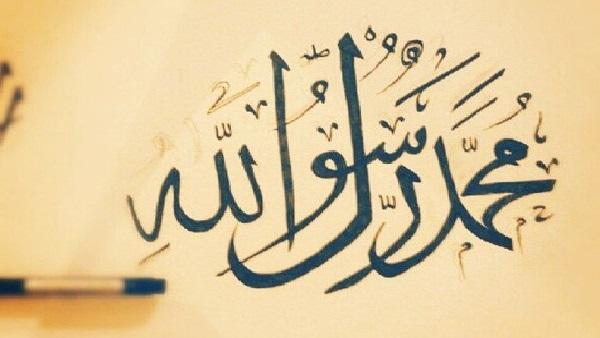 مُحَمَّدٌ رَّسُوْلُ اللهِ